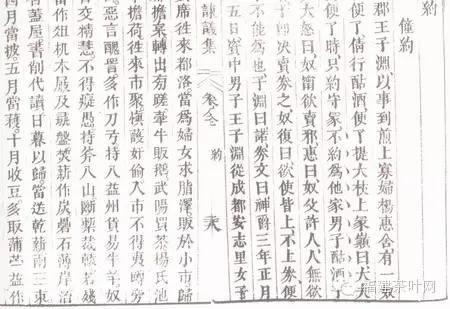 約
僮約
郡王子淵以事到煎上寡婦楊惠舍有一奴
便了倩行酤酒便了提大杖上冢巔曰大夫
便了時只約守冢不約為他家男子酤酒了
大怒曰奴甯欲賣邪惠曰奴父許人人無欲
子即決賣券之奴復曰欲使皆上不上券便
不能為也子淵曰諾券文曰神爵三年正月
五日資中男子王子淵從成都安志里女子
集 卷之 約
席徃來都洛當為婦女求脂澤販於小市歸
擔枲轉出旁蹉牽牛販鵝武陽買茶楊氏池
擔荷徃來市聚愼護奸偷入市不得夷蹲旁
惡言醜詈多作刀弓持入益州貨易牛羊奴
交精慧不得癡愚持斧入山斷槧裁轅若殘
當作俎机木屐及彘盤焚薪作炭礨石薄岸治
蓋屋書削代讀日暮以歸當送乾薪兩三束
四月當披五月當穫十月收豆多取蒲苎益作
福建茶叶网